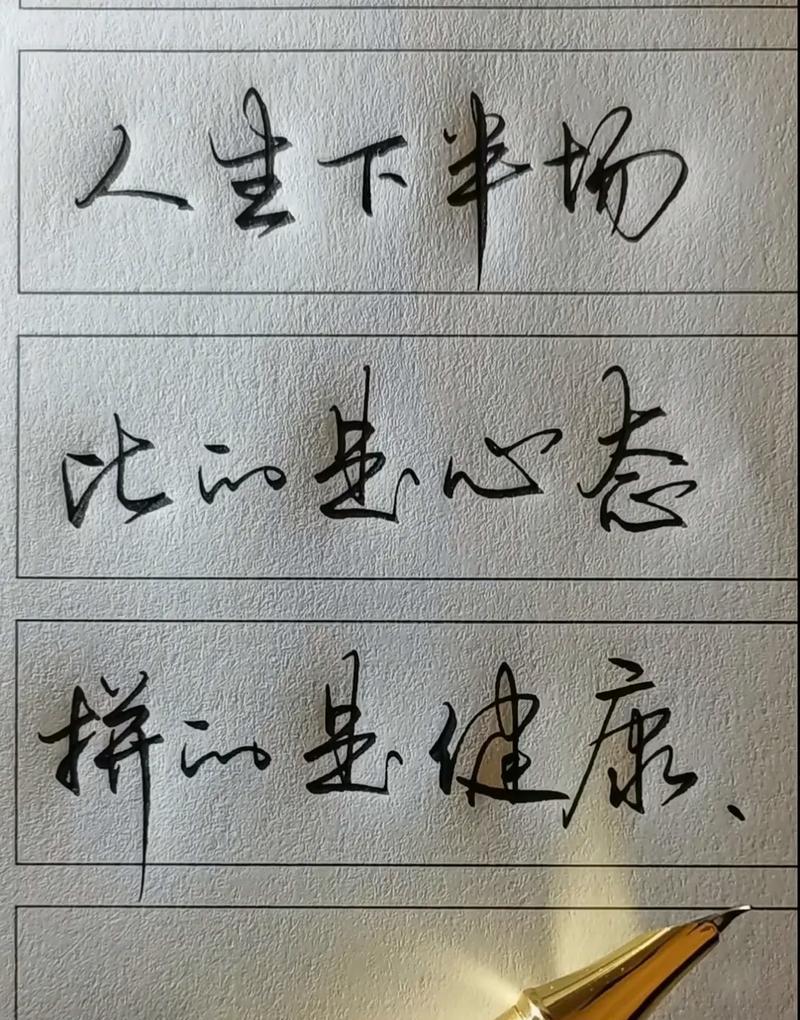 人生下半场
比的是心态
拼的是健康、